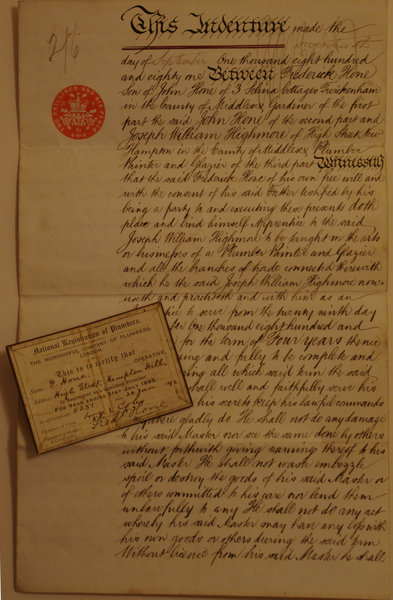 2/6
This Indenture made the
day of September One thousand eight hundred
and eighty one Between Frederick Hone
Son of John Hone of 3 Cottages Twickenham
in the County of Middlesex Gardener of the first
part the said John Hone of the second part and
Joseph William Highmore of High Street New
Hampton in the County of Middlesex Plumber
Painter and Glazier of the third part Witnesseth
that the said Frederick Hone of his own free will and
with the consent of his said Father testified by his
being a party to and executing these presents doth
place and bind himself Apprentice to the said
Joseph William Highmore to be taught in the arts
or businesses of a Plumber Painter and Glazier
and all the branches of trade connected therewith
which he the said Joseph William Highmore now
useth and practiseth and with him as an
to serve from the twenty ninth day
One thousand eight hundred and
for the term of Four years thence
and fully to be complete and
all which said term the said
shall well and faithfully serve his
his secrets keep his lawful commands
gladly do He shall not do any damage
to his said Master nor see the same done by others
without forthwith giving warning thereof to his
said Master He shall not waste embezzle
spoil or destroy the goods of his said Master or
of others committed to his care nor lend them
unlawfully to any He shall not do any act
whereby his said Master may have any loss with
his own goods or others during the said term
Without licence from his said Master he shall
National Registration of Plumbers
THE WORSHIPFUL COMPANY OF PLUMBERS,
LONDON.
This is to certify that
OPERATIVE
Name F. Hone
Address High Street Hampton Hill
FOR YEAR ENDING 31ST JULY 1893.